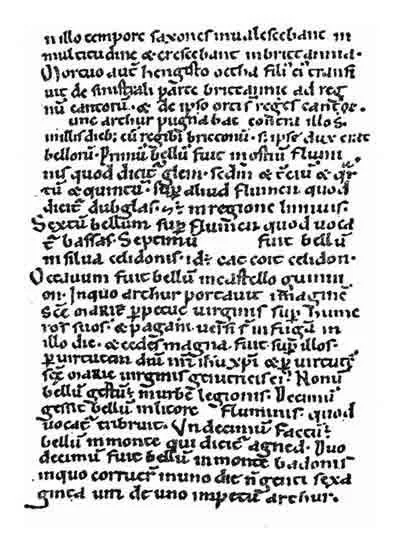 n illo tempore saxones inualescebant in
multitudine & crescebant in brittannia.
Mortuo aut̄ hengisto octha filiꝰ eiꝰ transi
uit de sinistrali parte brittanniæ ad reg
nū cantorū. & de ipso orti s̄ reges cantor̄.
unc arthur pugnabat contra illos.
in illis dieb; cū regibꝰ brittonū. s; ipse dux erat
bellorū. Primū bellū fuit in ostiū flumi
nis quod dicit̄ glein. sc̄dm & t̄ciū & qr̄
tū & quintū. sup̄ aliud flumen quod
dicit̄ dubglas. & ÷ in regione linnuis.
Sextū bellum sup̄ flumen quod uoca
t̄ bassas. Septimū fuit bellū
in silua celidonis. id÷ cat coit celidon.
Octauum fuit bellū in castello guinni
on. In quo arthur portauit imaginē
sc̄ē mariæ p̄petuæ uirginis sup̄ hume
ros suos. & pagani uersi s̄ in fugā in
illo die. & cedes magna fuit sup̄ illos.
p̄ uirtutem dn̄i nr̄i ihū xp̄i & p̄ uirtutē
sc̄ē mariæ uirginis genitricis eiꝰ. Nonū
bellū gestū÷ in urbe legionis. Decimū
gessit bellū in litore fluminis. quod
uocat̄ tribruit. Undecimū factū÷
bellū in monte qui dicit̄ agned. Duo
decimū fuit bellū in monte badonis
in quo corruer̄ in uno die nongenti sexa
ginta uiri de uno impetu arthur.